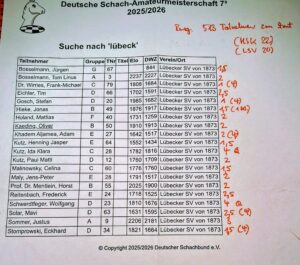 Deutsche Schach-Amateurmeisterschaft 7³
2025/2026
Teilnehmer am Start
(HSK 22)
(LSV 20)
Suche nach 'lübeck'
Teilnehmer Gruppe TNr Titel Elo DWZ Verein/Ort
Bosselmann, Jürgen G 67 844 Lübecker SV von 1873 1,5
Bosselmann, Tom Linus A 3 2237 2227 Lübecker SV von 1873 2
Dr. Wirries, Frank-Michael C 79 1805 1684 Lübecker SV von 1873
Eichler, Tim D 66 1702 1591 Lübecker SV von 1873
Gosch, Stefan D 20 1985 1682 Lübecker SV von 1873
Lübecker SV von 1873
Holand, Mattias F 40 1731 1259 Lübecker SV von 1873 2
Kaeding, Oliver B 50 1910 1913 Lübecker SV von 1873 2
Khadem Aljamea, Adam E 27 1642 1517 Lübecker SV von 1873
Kutz, Henning Jasper F 64 1552 1434 Lübecker SV von 1873 1,5
Kutz, Ida Klara C 28 1782 1816 Lübecker SV von 1873
Kutz, Paul Matti D 12 1760 1709 Lübecker SV von 1873 2
Malinowsky, Celina C 60 1776 1760 Lübecker SV von 1873
Maly, Jens-Peter E 28 1731 1517 Lübecker SV von 1873 2
Prof. Dr. Mentlein, Horst B 55 2025 1900 Lübecker SV von 1873 2
Reifenbach, Frederick E 24 1718 1525 Lübecker SV von 1873
Schwerdtfeger, Wolfgang D 23 1810 1676 Lübecker SV von 1873
Solar, Mavi D 63 1631 1595 Lübecker SV von 1873
Sommer, Justus A 9 2206 2181 Lübecker SV von 1873 3
Stomprowski, Eckhard D 34 1821 1664 Lübecker SV von 1873
© Copyright 2025/2026 Deutscher Schachbund e.V.